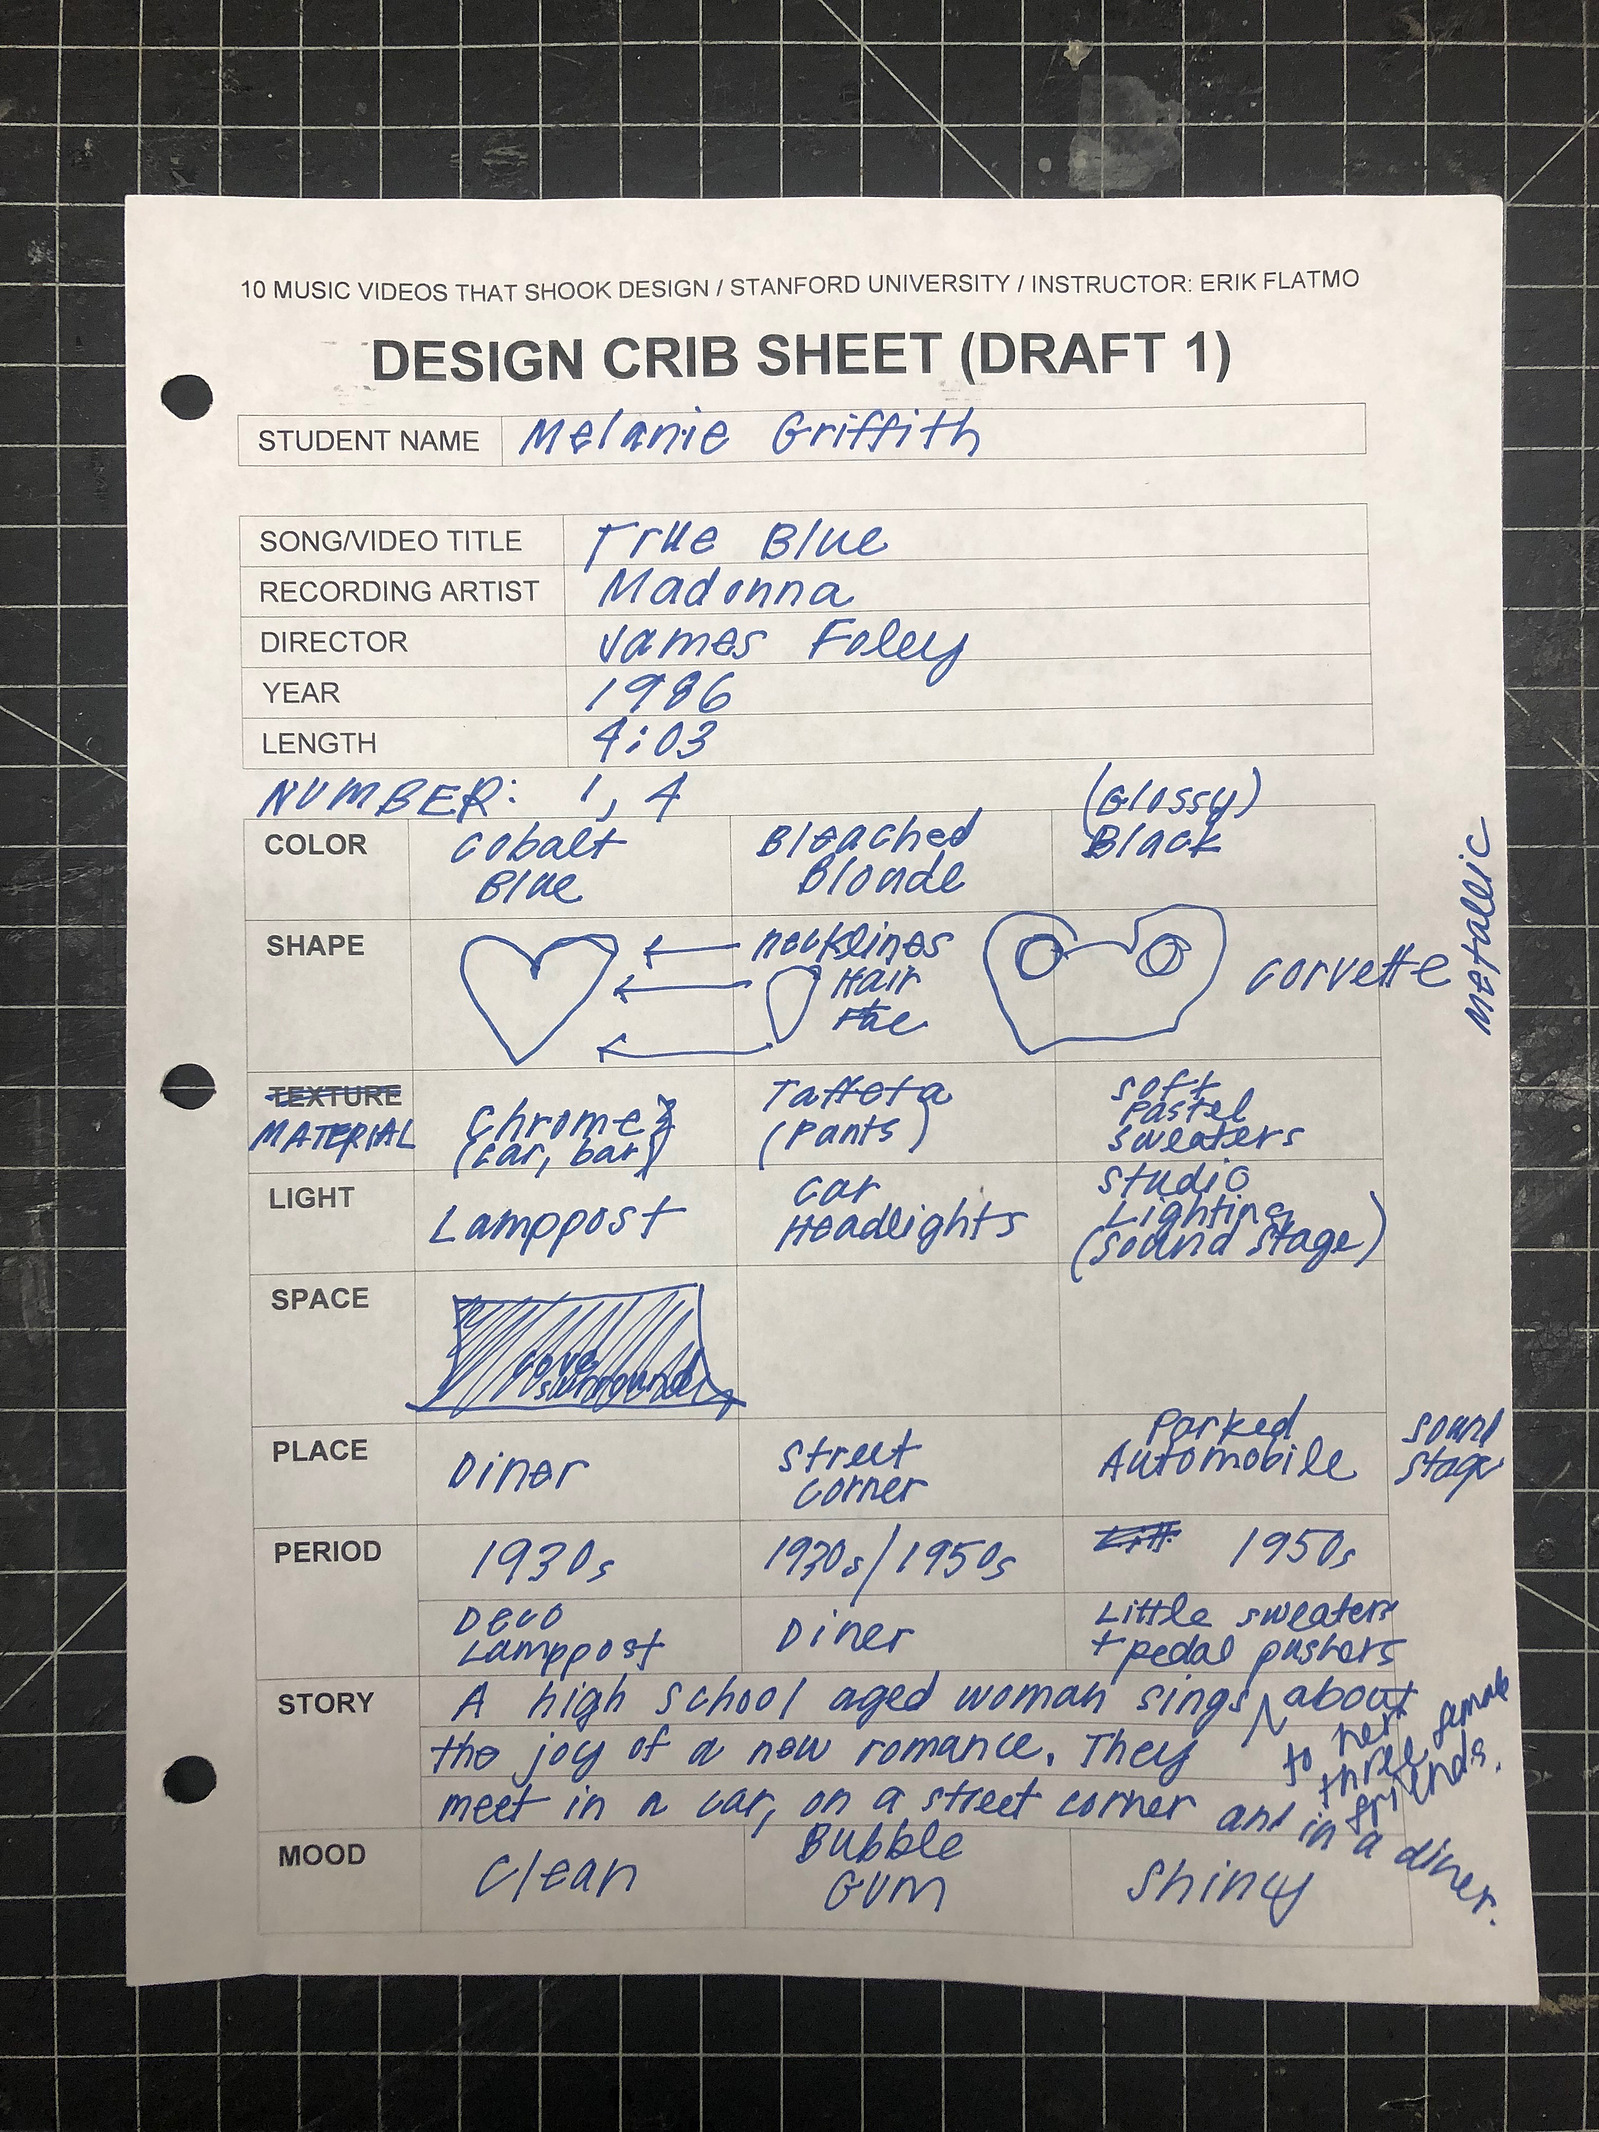 10 MUSIC VIDEOS THAT SHOOK DESIGN / STANFORD UNIVERSITY / INSTRUCTOR: ERIK FLATMO
DESIGN CRIB SHEET (DRAFT 1)
STUDENT NAME Melanie Griffith
SONG/VIDEO TITLE True Blue
RECORDING ARTIST Madonna
DIRECTOR James Foley
YEAR 1986
LENGTH 4:03
NUMBER: 1, 4
COLOR Cobalt Blue
Bleached Blonde
(Glossy) Black
Metallic
SHAPE
necklines
Hair
corvette
TEXTURE
MATERIAL
Chrome
(car, bar)
Taffeta
(pants)
soft
Pastel
sweaters
LIGHT
Lamppost
car
Headlights
Studio
Lighting
(sound stage)
SPACE
cove
surround
PLACE
Diner
Street
corner
Parked
Automobile
sound
stage
PERIOD
1930s
1930s/1950s
1950s
Deco
Lamppost
Diner
Little sweaters
+ pedal pushers
STORY
A high school aged woman sings about
to her
three female
friends.
the joy of a new romance. They
meet in a car, on a street corner and in a diner.
MOOD
Clean
Bubble
Gum
Shiny